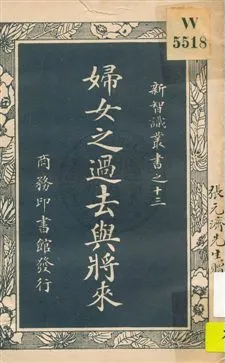 W
5518
新智識叢書之十三
婦女之過去與將來
商務印書館發行
張元濟先生